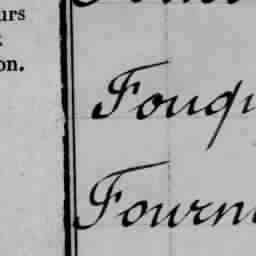 urs
on.
Fouqu
Fourn